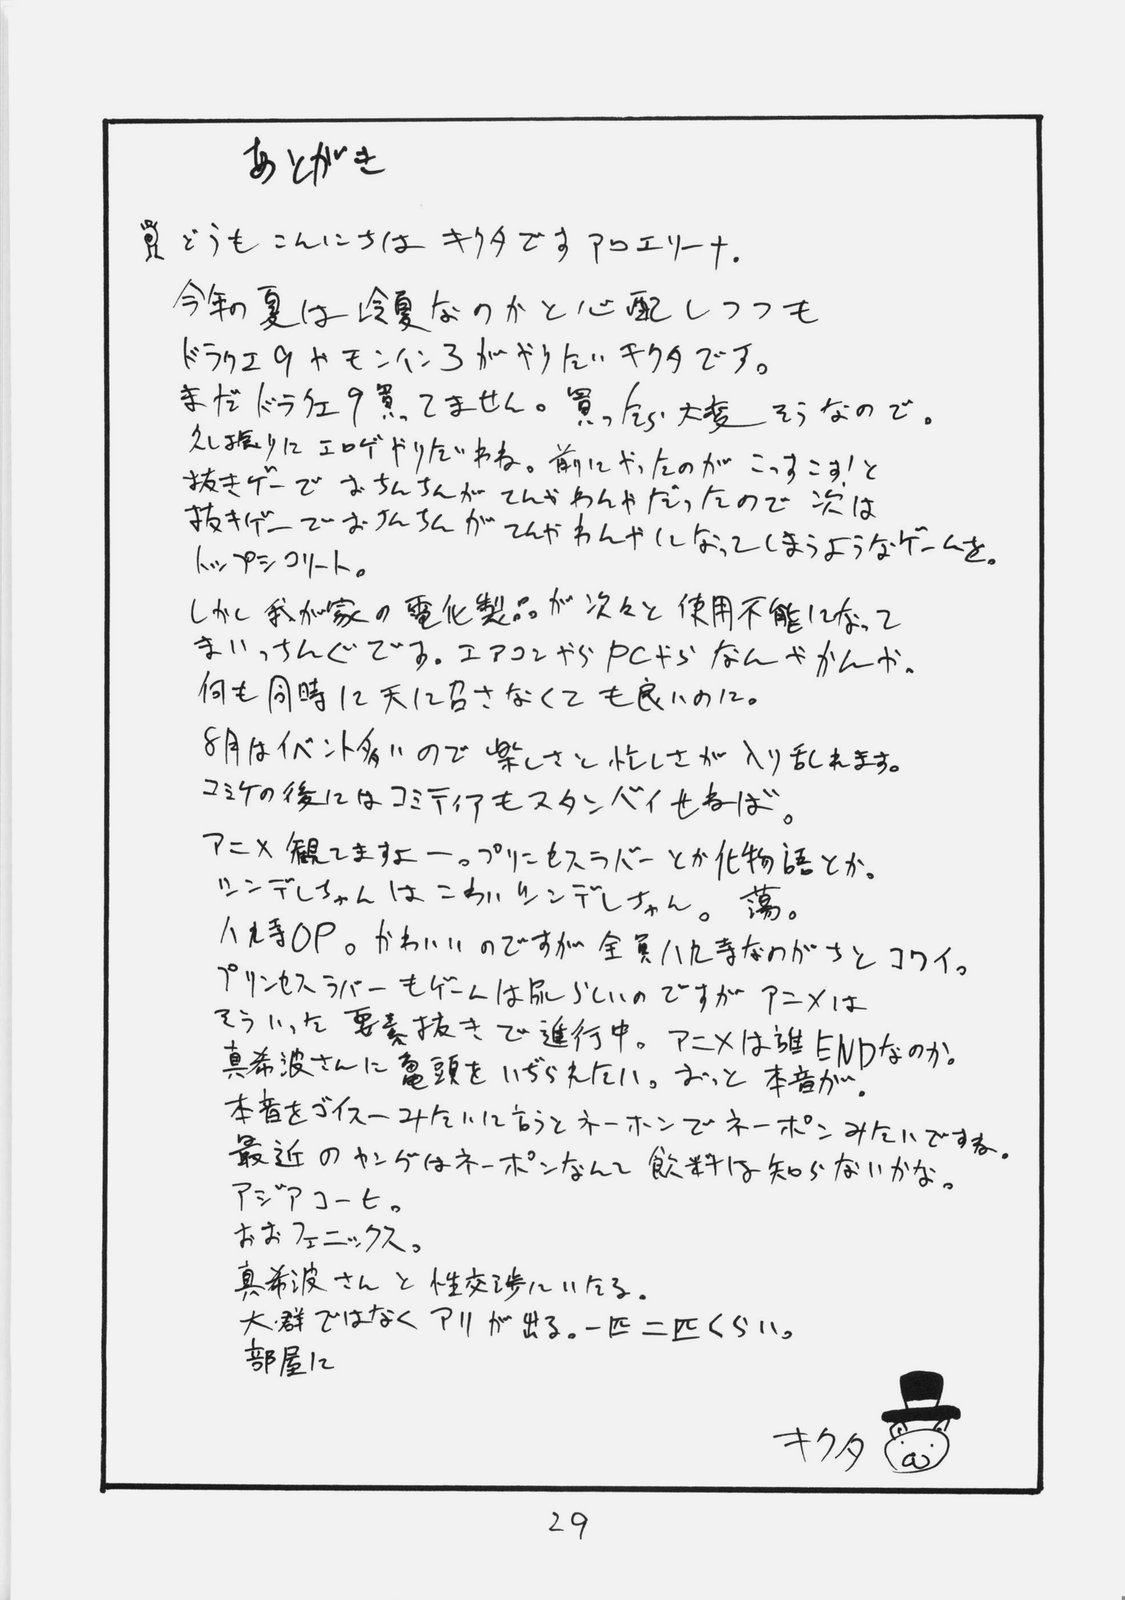 あとがき
どうもこんにちは キクタです アロエリーナ.
今年の夏は冷夏なのかと心配しつつも
ドラクエ9やモンイン3がやりたいキクタです。
まだドラクエ9買ってません。買ったら大変そうなので。
久し振りにエロゲやりたいわね。前にやったのがこっすこす!と
抜きゲーでおちんちんがてんやわんやだったので次は
抜きゲーでおちんちんがてんやわんやになってしまうようなゲームを。
トップシコリート。
しかし我が家の電化製品が次々と使用不能になって
まいっちんぐです。エアコンやらPCやらなんやかんや。
何も同時に天に召さなくても良いのに。
8月はイベント多いので楽しさと忙しさが入り乱れます。
コミケの後にはコミティアもスタンバイせねば。
アニメ観てますよー。プリンセスラバーとか化物語とか。
ツンデレちゃんはこわいツンデレちゃん。蕩。
八九寺OP。かわいいのですが全員八九寺なのがちとコワイ。
プリンセスラバーもゲームは尿らしいのですがアニメは
そういった要素抜きで進行中。アニメは誰ENDなのか。
真希波さんに亀頭をいぢられたい。おっと本音が。
本音をゴイスーみたいに言うとネーホンでネーポンみたいですね。
最近のヤングはネーポンなんて飲料は知らないかな。
アジアコーヒ。
おおフェニックス。
真希波さんと性交渉にいたる。
大群ではなくアリが出る。一匹二匹くらい。
部屋に
キクタ
29